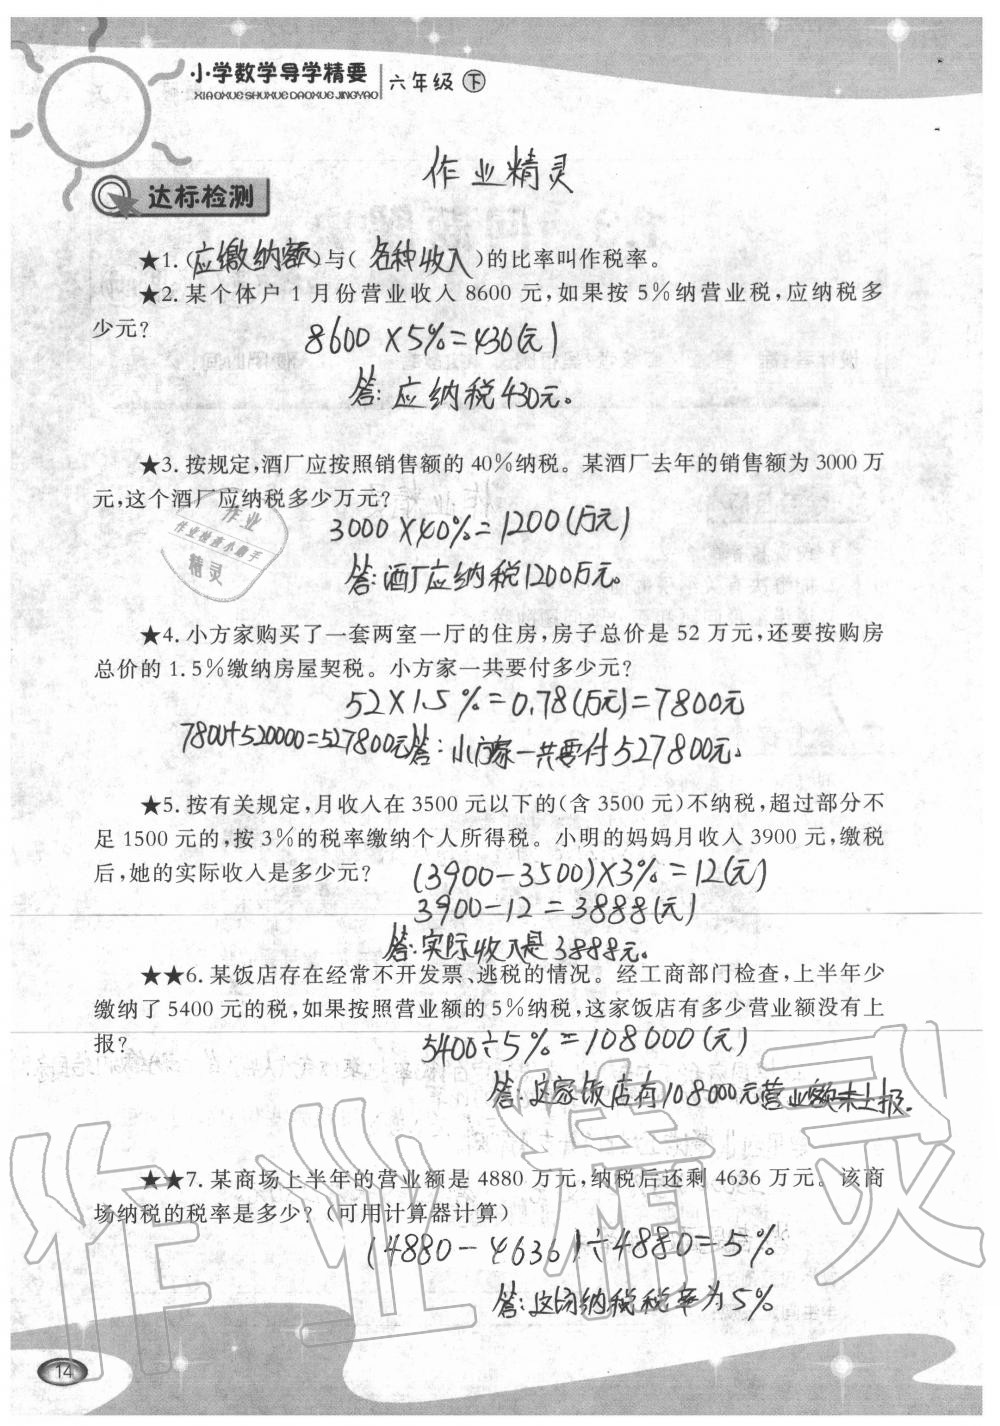 小学数学导学精要
XIAOXUE SHUXUE DAOXUE JINGYAO
六年级 下
作业精灵
达标检测
★1.(应缴纳额)与(各种收入)的比率叫作税率。
★2.某个体户1月份营业收入8600元,如果按5%纳营业税,应纳税多
少元?
8600×5%=430(元)
答:应纳税430元。
★3.按规定,酒厂应按照销售额的40%纳税。某酒厂去年的销售额为3000万
元,这个酒厂应纳税多少万元?
3000×40%=1200(万元)
答:酒厂应纳税1200万元。
作业
作业检查小助手
精灵
★4.小方家购买了一套两室一厅的住房,房子总价是52万元,还要按购房
总价的1.5%缴纳房屋契税。小方家一共要付多少元?
52×1.5%=0.78(万元)=7800元
7800+520000=527800元答:小方家一共要付527800元。
★5.按有关规定,月收入在3500元以下的(含3500元)不纳税,超过部分不
足1500元的,按3%的税率缴纳个人所得税。小明的妈妈月收入3900元,缴税
后,她的实际收入是多少元?
(3900-3500)×3%=12(元)
3900-12=3888(元)
答:实际收入是3888元。
★★6.某饭店存在经常不开发票、逃税的情况。经工商部门检查,上半年少
缴纳了5400元的税,如果按照营业额的5%纳税,这家饭店有多少营业额没有上
报?
5400÷5%=108000(元)
答:这家饭店有108000元营业额未上报.
★★7.某商场上半年的营业额是4880万元,纳税后还剩4636万元。该商
场纳税的税率是多少?(可用计算器计算)
(4880-4636)÷4880=5%
答:这场纳税税率为5%
作业精灵
14